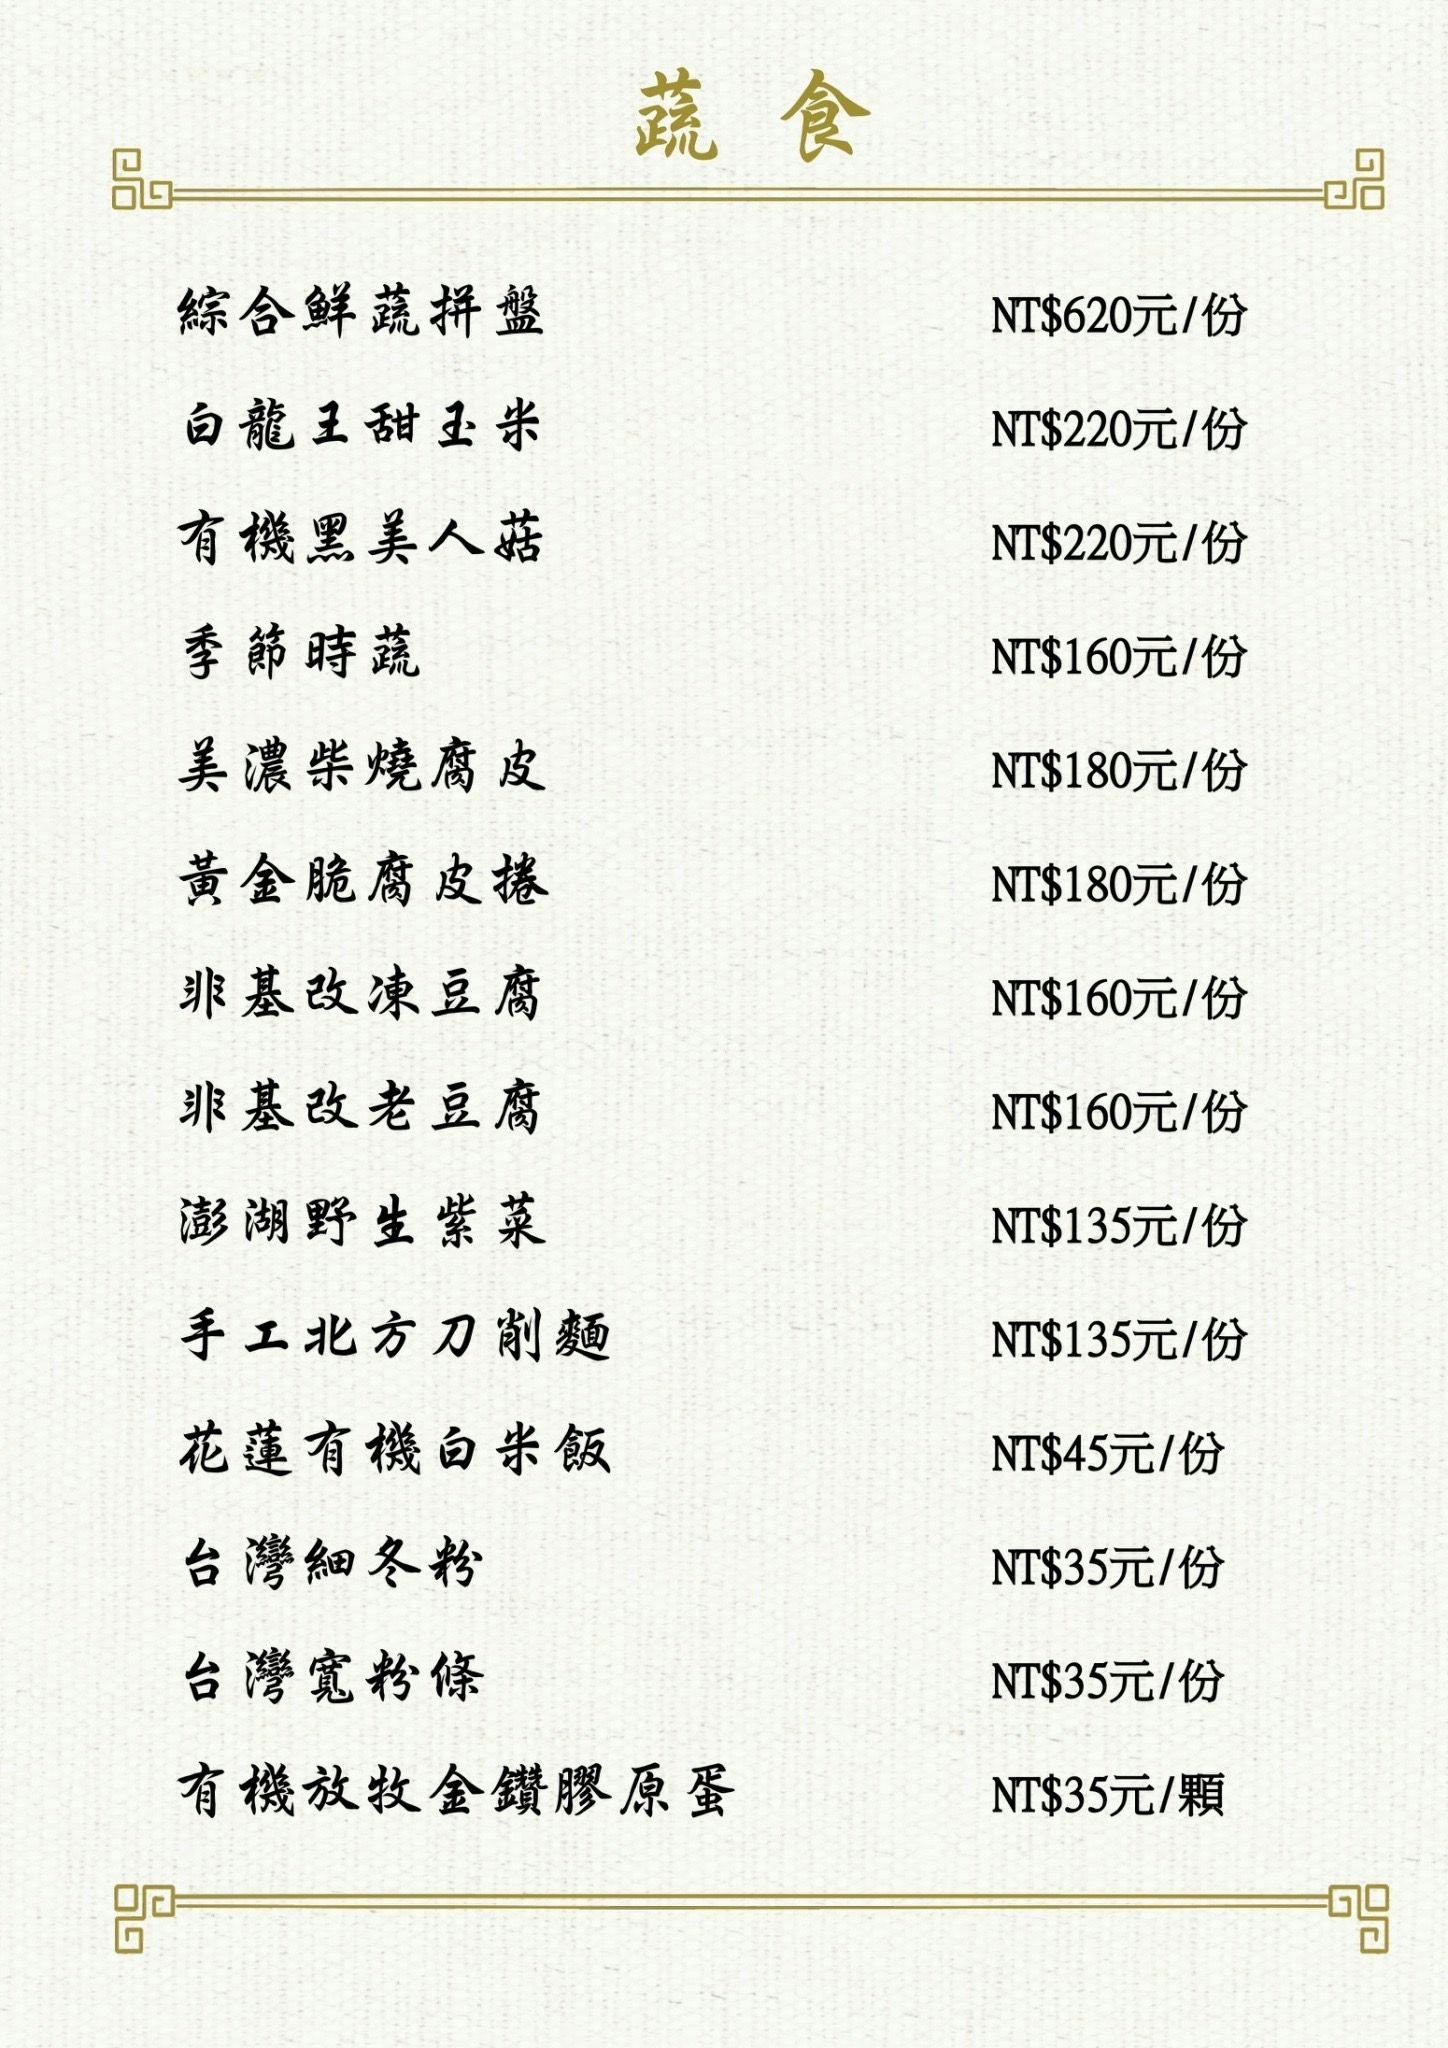 蔬食
綜合鮮蔬拼盤 NT$620元/份
白龍王甜玉米 NT$220元/份
有機黑美人菇 NT$220元/份
季節時蔬 NT$160元/份
美濃柴燒腐皮 NT$180元/份
黃金脆腐皮捲 NT$180元/份
非基改凍豆腐 NT$160元/份
非基改老豆腐 NT$160元/份
澎湖野生紫菜 NT$135元/份
手工北方刀削麵 NT$135元/份
花蓮有機白米飯 NT$45元/份
台灣細冬粉 NT$35元/份
台灣寬粉條 NT$35元/份
有機放牧金鑽膠原蛋 NT$35元/顆